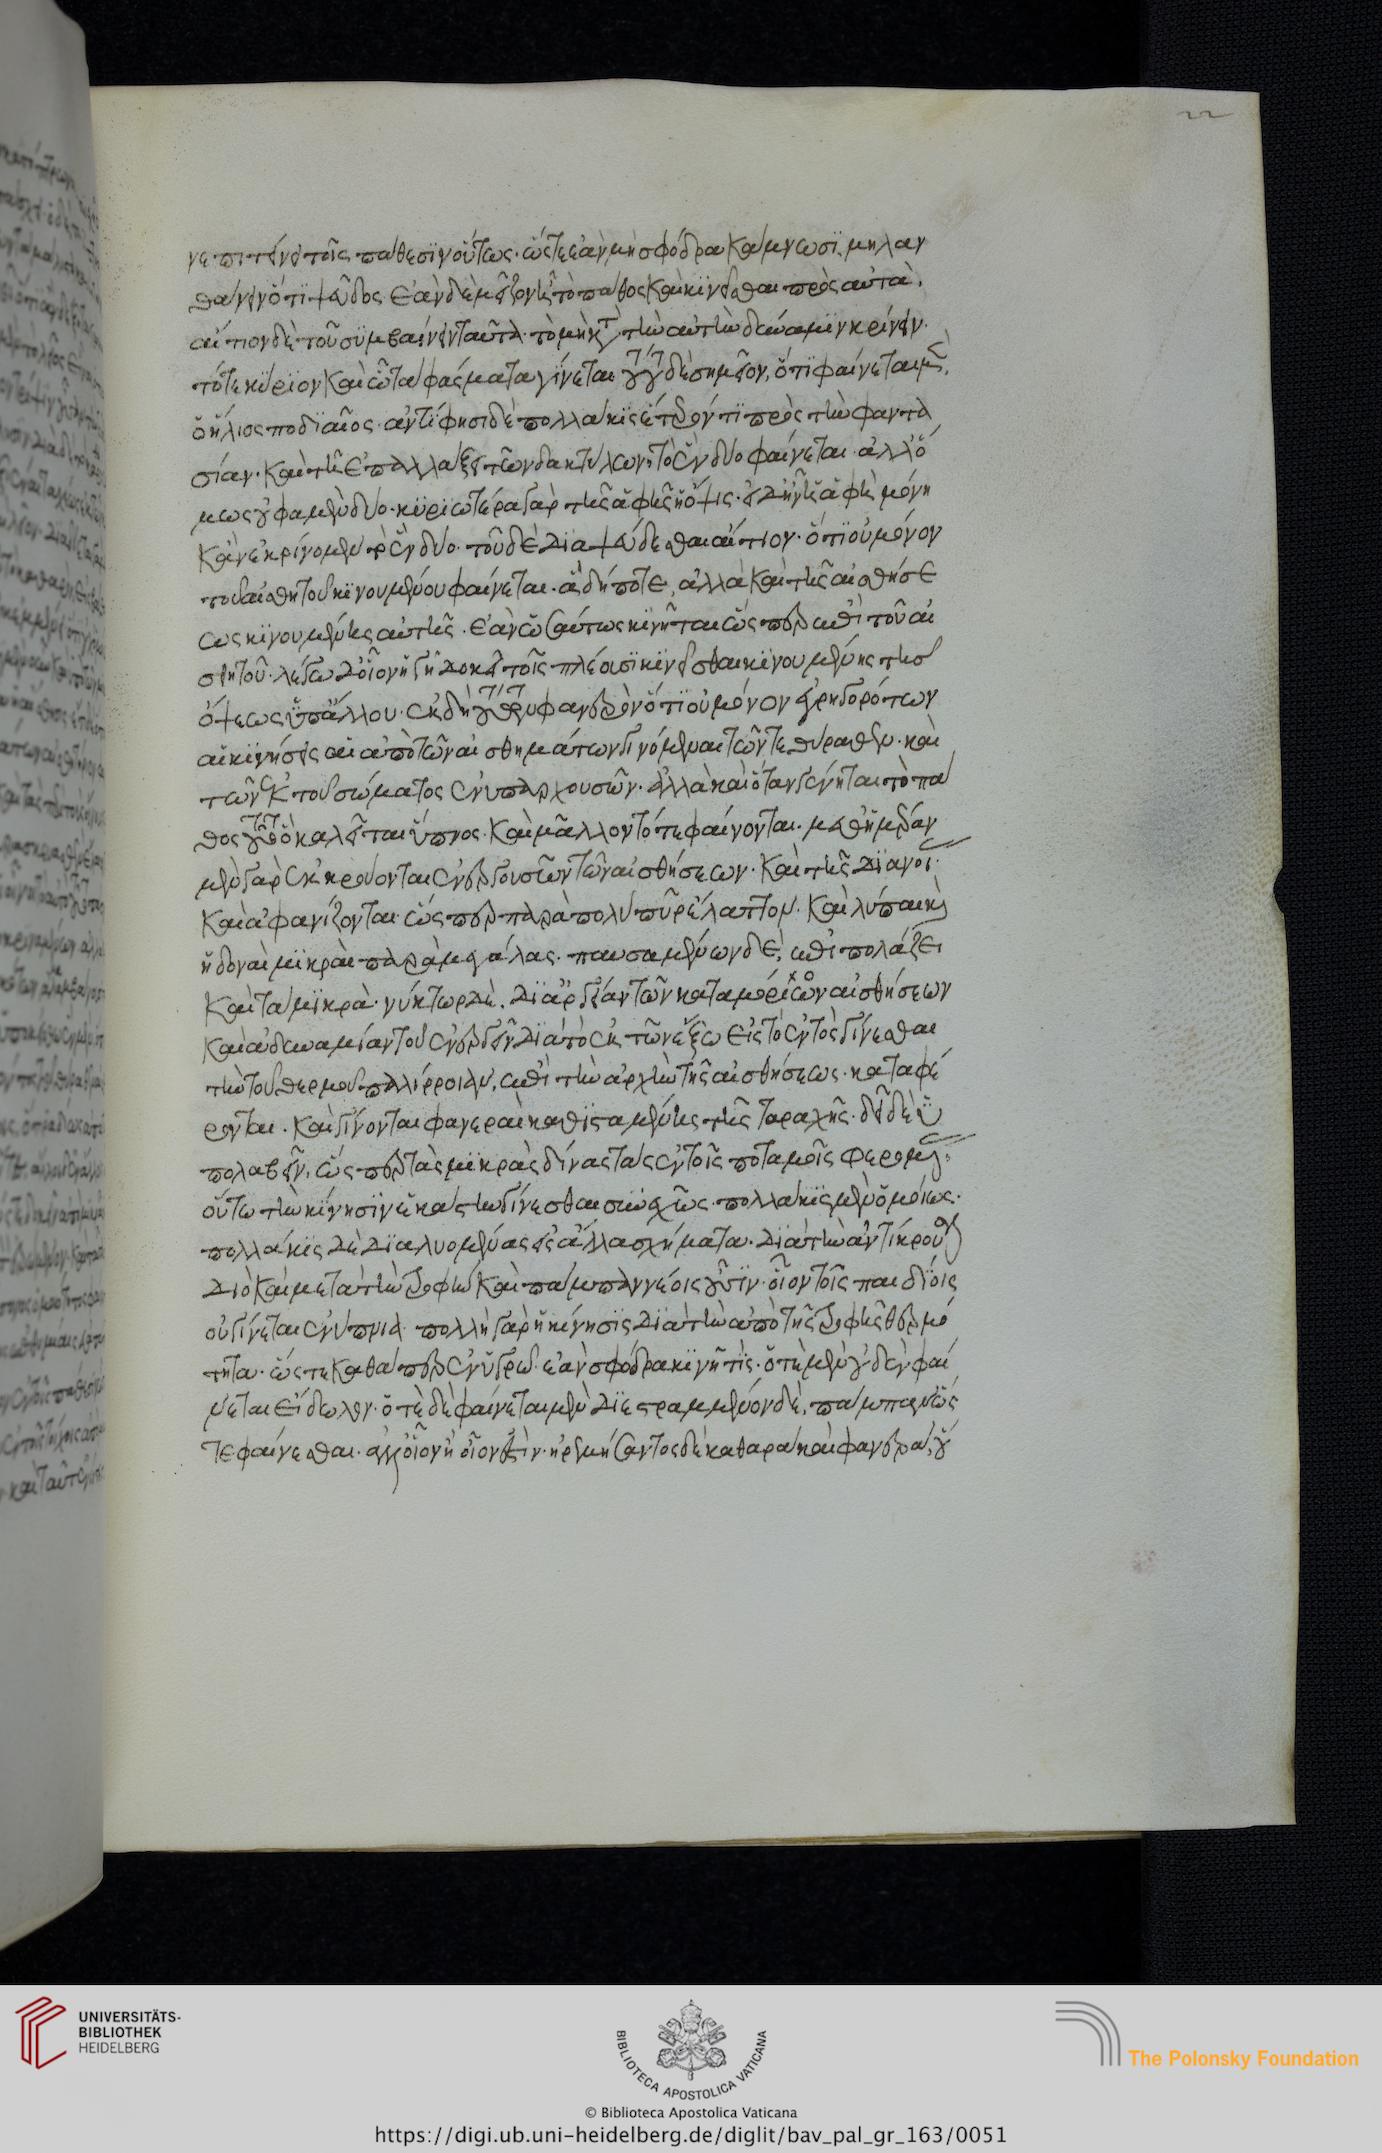 νεπιτείνει τοῖς πάθεσιν οὕτως. ὥστε ἐὰν μὴ σφόδρα κάμνωσι, μὴ λαν
θάνειν ὅτι ψεῦδος. ἐὰν δὲ μεῖζον ᾖ τὸ πάθος καὶ κινεῖσθαι πρὸς αὐτά.
αἴτιον δὲ τοῦ συμβαίνειν ταῦτα. τὸ μὴ κατὰ τὴν αὐτὴν δύναμιν κρίνειν.
τό τε κύριον καὶ ᾧ τὰ φάσματα γίνεται τούτου δὲ σημεῖον, ὅτι φαίνεται μὲν
ὁ ἥλιος ποδιαῖος. ἀντίφησι δὲ πολλάκις ἕτερόν τι πρὸς τὴν φαντα
σίαν. καὶ τῇ ἐπαλλάξει τῶν δακτύλων τὸ ἓν δύο φαίνεται. ἀλλ' ὅ
μως οὔ φαμεν δύο. κυριωτέρα γὰρ τῆς ἁφῆς ἡ ὄψις. εἰ δ' ἦν ἡ ἁφὴ μόνη
κἂν ἐκρίνομεν τὸ ἓν δύο. τοῦ δὲ διαψεύδεσθαι αἴτιον. ὅτι οὐ μόνον
τοῦ αἰσθητοῦ κινουμένου φαίνεται. ἃ δήποτε, ἀλλὰ καὶ τῆς αἰσθήσε
ως κινουμένης αὐτῆς. ἐὰν ὡσαύτως κινῆται ὥσπερ ἐπὶ τοῦ αἰ
σθητοῦ. λέγω δ' οἷον ἡ γῆ δοκεῖ τοῖς πλέουσι κινεῖσθαι κινουμένης τῆς
ὄψεως ὑπ' ἄλλου. ἐκ δὴ τούτων φανερὸν ὅτι οὐ μόνον ἐγρηγορότων
αἱ κινήσεις αἱ ἀπὸ τῶν αἰσθημάτων γινόμεναι τῶν τε θύραθεν. καὶ
τῶν ἐκ τοῦ σώματος ἐνυπαρχουσῶν. ἀλλὰ καὶ ὅταν γένηται τὸ πά
θος τοῦτο ὃ καλεῖται ὕπνος. καὶ μᾶλλον τότε φαίνονται. μεθ' ἡμέραν
μὲν γὰρ ἐκκρούονται ἐνεργουσῶν τῶν αἰσθήσεων. καὶ τῆς διανοίας
καὶ ἀφανίζονται ὥσπερ παρὰ πολὺ πῦρ ἔλαττον. καὶ λύπαι καὶ
ἡδοναὶ μικραὶ παρὰ μεγάλας. παυσαμένων δὲ, ἐπιπολάζει
καὶ τὰ μικρὰ. νύκτωρ δὲ. δι' ἀργίαν τῶν κατὰ μόριον αἰσθήσεων
καὶ ἀδυναμίαν τοῦ ἐνεργεῖν διὰ τὸ ἐκ τῶν ἔξω εἰς τὸ ἐντὸς γίνεσθαι
τὴν τοῦ θερμοῦ παλίρροιαν, ἐπὶ τὴν ἀρχὴν τῆς αἰσθήσεως. καταφέ
ρονται. καὶ γίνονται φανεραὶ καθισταμένης τῆς ταραχῆς. δεῖ δὲ ὑ
πολαβεῖν, ὥσπερ τὰς μικρὰς δίνας τὰς ἐν τοῖς ποταμοῖς φερομένας
οὕτω τὴν κίνησιν ἑκάστην γίνεσθαι συνεχῶς. πολλάκις μὲν ὁμοίως.
πολλάκις δὲ διαλυομένας εἰς ἄλλα σχήματα. διὰ τὴν ἀντίκρουσιν
διὸ καὶ μετὰ τὴν τροφὴν καὶ πάμπαν νέοις οὖσιν. οἷον τοῖς παιδίοις
οὐ γίνεται ἐνύπνια πολλὴ γὰρ ἡ κίνησις διὰ τὴν ἀπὸ τῆς τροφῆς θερμό
τητα. ὥστε καθάπερ ἐν ὑγρῷ. ἐὰν σφόδρα κινῇ τις. ὁτὲ μὲν οὐδὲν φαί
νεται εἴδωλον. ὁτὲ δὲ φαίνεται μὲν διεστραμμένον δὲ, πάμπαν ὥσ
τε φαίνεσθαι. ἀλλοῖον ἢ οἷον ἐστίν. ἠρεμήσαντος δὲ καθαρὰ καὶ φανερά, οὕ
22
UNIVERSITÄTS-
BIBLIOTHEK
HEIDELBERG
BIBLIOTECA APOSTOLICA VATICANA
The Polonsky Foundation
© Biblioteca Apostolica Vaticana
https://digi.ub.uni-heidelberg.de/diglit/bav_pal_gr_163/0051